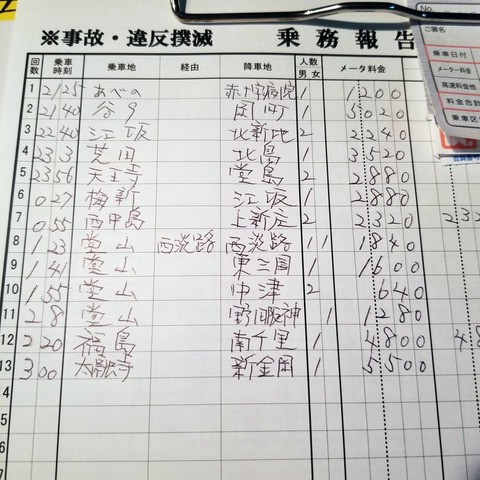 ※事故・違反撲滅 乗務報告
回数 乗車時刻 乗車地 経由 降車地 人数 男 女 メータ料金
1 21 25 あべの 赤十字病院 1 1200
2 21 40 谷9 岡町 1 5020
3 22 40 江坂 北新地 2 2240
4 23 3 荒田 北島 1 3520
5 23 56 天王寺 堂島 2 2880
6 0 27 梅新 江坂 1 2880
7 0 55 西中島 上新庄 2 2320 232
8 1 23 堂山 西淡路 西淡路 1 1 1840
9 1 41 堂山 東三国 1 1600
10 1 55 堂山 中津 2 640
11 2 8 堂山 野田阪神 1 1280
12 2 20 福島 南千里 1 4800 48
13 3 00 太融寺 新金岡 1 5500
14
15
16
17
No.
ご署名
乗車日付
メーター料金
高速料金他
料金合計
乗車区